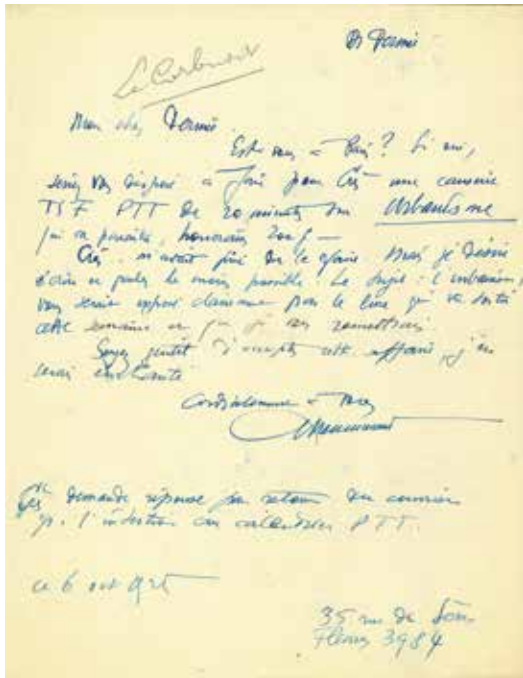 Dr Dermée
Le Corbusier
Mon cher Dermée
Êtes vous à Paris? Si oui,
seriez vous disposé à faire pour Crès une causerie
TSF PTT de 20 minutes sur Urbanisme
qui va paraître, honoraires 200 f —
Crès m'avait prié de le faire. Mais je désire
le moins possible. Le sujet: l'urbanisme,
vous serait exposé dans par le livre qui va sortir
cette semaine et que je vous remettrai
Soyez gentil d'accepter cette affaire, j'en
serai enchanté
Cordialement à vous
Jeanneret
Crès demande réponse par retour du courrier
p. l'insertion au calendrier PTT.
ce 6 oct 925
35 rue de Sèvres
Fleurus 3984